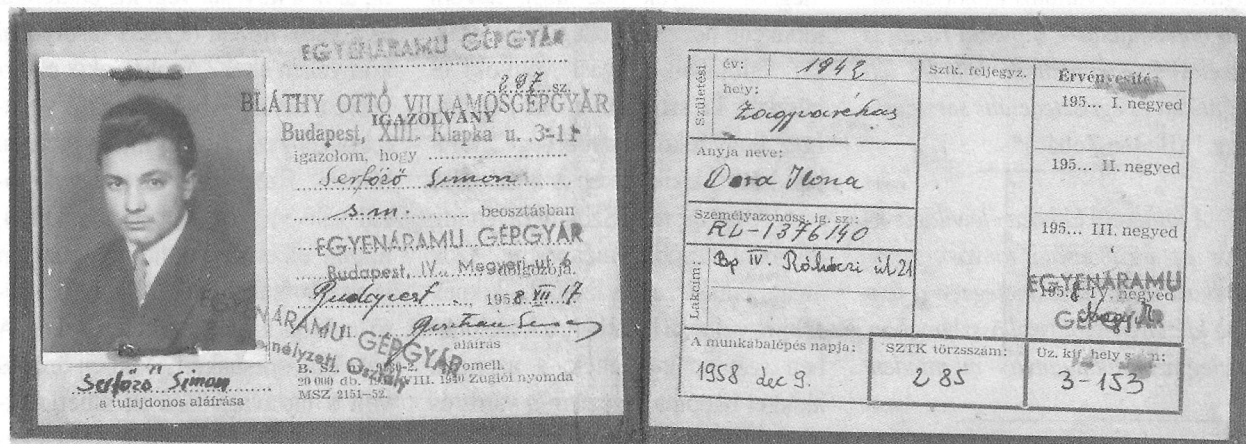 EGYENÁRAMU GÉPGYÁR
297 sz.
BLÁTHY OTTÓ VILLAMOSGÉPGYÁR
IGAZOLVÁNY
Budapest, XIII. Klapka u. 3-11
igazolom, hogy
Serfőző Simon
s.m. beosztásban
EGYENÁRAMU GÉPGYÁR
Budapest, IV., Megyeri-ut 6
dolgozója.
Budapest 1958 VII 17
aláírás
EGYENÁRAMU GÉPGYÁR
Személyzeti Osztály
B. Sz.
20 000 db. VIII. 1940 Zuglói nyomda
MSZ 2151-52.
Serfőző Simon
a tulajdonos aláírása
Születési
év: 1942
hely:
Zagyvarékas
Anyja neve:
Dora Ilona
Személyazonoss. ig. sz.:
RL-1376140
Lakcím:
Bp IV. Rákóczi út 21
A munkábalépés napja:
1958 dec 9.
Sztk. feljegyz.
SZTK törzsszám:
285
Érvényesítés
195... I. negyed
195... II. negyed
195... III. negyed
1958 IV. negyed
EGYENÁRAMU
GÉPGYÁR
Üz. kif. hely szám:
3-153